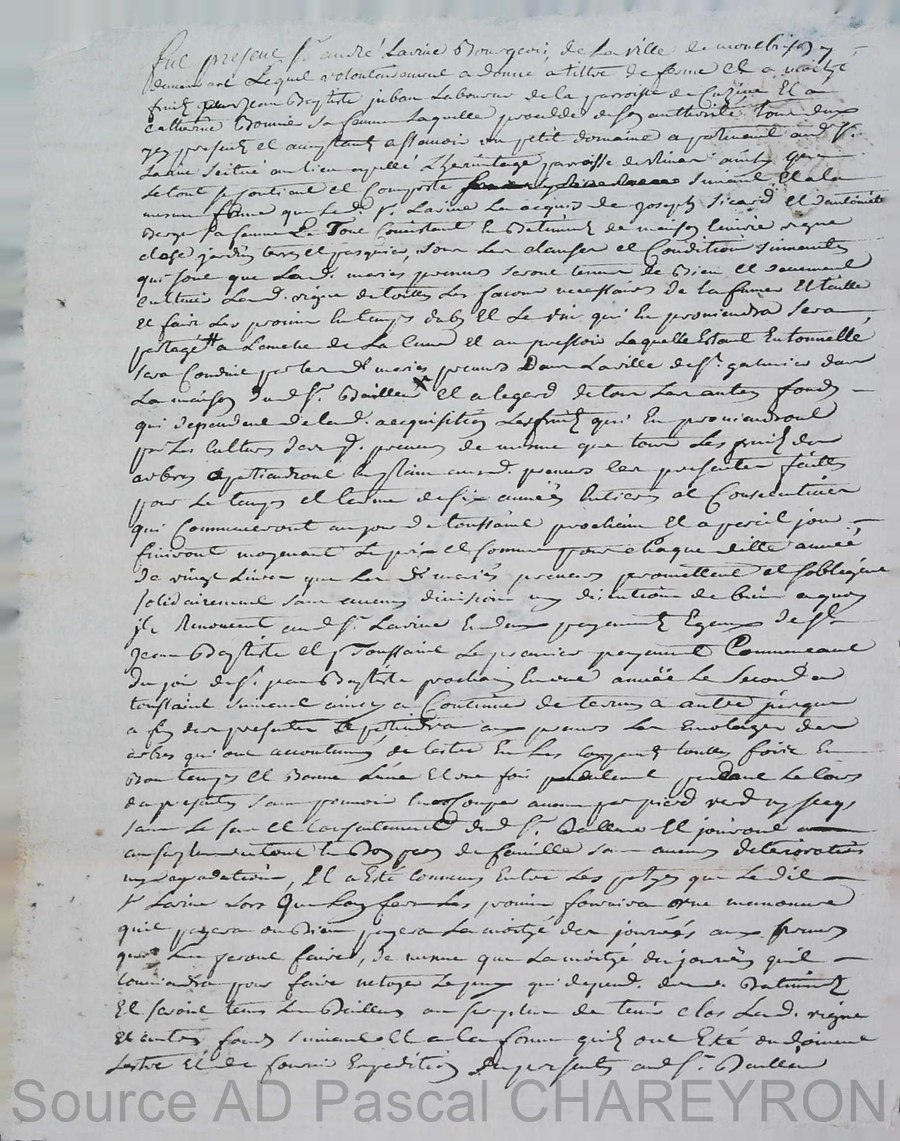 Fut present Sr. andré Lavine Bourgeois de La ville de montbrison y
demeurant Lequel volontairement a donné a tiltre de ferme Et a moitye
fruit pour Jean Baptiste juban Laboureur de la parroisse de Et a
catherine Bonnie sa femme Laquelle procedde de son authorité tous deux
yey presents et acceptants assavoir un petit domaine apartenant aud. Sr.
Lavine scitué au lieu appellé L'hermitage parroisse de ainsy que
Le tout se contient et Comporte suivant Et a la
mesme forme que Led. Sr. Lavine La acquis de joseph Sicard Et d'antoinette
Berge sa femme Le Tout Consistant En Batiments de maison Cuvier vigne
close jardin terre et pasquier, sous Les clauses et Condition suivantes
qui sont que Lesd. mariés preneurs seront tenus de Bien Et deuement
cultiver Lad. vigne de toutes Les façons necessaires de la fumer Et tailler
Et faire Les provins En temps dub Et Le vin qui En proviendra sera
partagé a L'anche de La Cuve Et au pressoir Laquelle Estant Entonnellé
sera Conduit par les d. mariés preneurs Dans La ville de St. galmier dans
La maison dud. Sr. Bailleur Et a legard de tous Les autres fonds
qui dependent de lad. acquisition Les fruits qui En proviendront
par Les Cultures desd. preneurs de mesme que tous Les fruits des
arbres apartiendront En plain auxd. preneurs Les presentes faittes
pour Le temps et terme de six années Entieres et Consecutives
qui Commenceront au jour de toussaint prochain Et a pareil jour
finiront moyenant Le prix et somme pour chaque ditte année
de vingt Livres que Les d. mariés preneurs promettent et s'obligent
solidairement sans aucune division ny discution de biens a quoy
ils Renoncent aud. Sr. Lavine En deux payements Egaux de St.
Jean Baptiste et Toussaint Le premier payement Commencant
du jour de St. jean Baptiste prochain En une année Le Second a
toussaint suivant ainsy a Continuer de termes a autre jusque
a fin des presentes apartiendra aux preneurs Les Emondages des
arbres qui ont accoutumés de L'estre En Les coppant touttes fois En
Bon temps Et Bonne Lune Et une fois seulement pendant Le Cours
des presentes sans pouvoir En Couper aucun par pied verd ny secq,
sans Le sceu Et Consentement dud. Sr. Bailleur Et jouiront
au surplus du tout En Bon pere de famille sans aucunes deteriorations
ny degradations, Et a Esté convenu Entre Les partyes que Le dit
Sr. Lavine Lors Que L'on fera Les provins fournira une manoeuvre
quil payera ou Bien payera La moitye des journées aux preneurs
que Leur seront faire, de mesme que La moitye des journées quil
conviendra pour faire netoyer Le puy qui depend desd. Batiments
Et seront tenus Les Bailleur au surplus de tenir clos Lad. vigne
Et autres fonds suivant Et a la forme quils ont Eté ou doivent
L'estre Et de fournir Expedition Des presentes aud. Sr. Bailleur
Source AD Pascal CHAREYRON